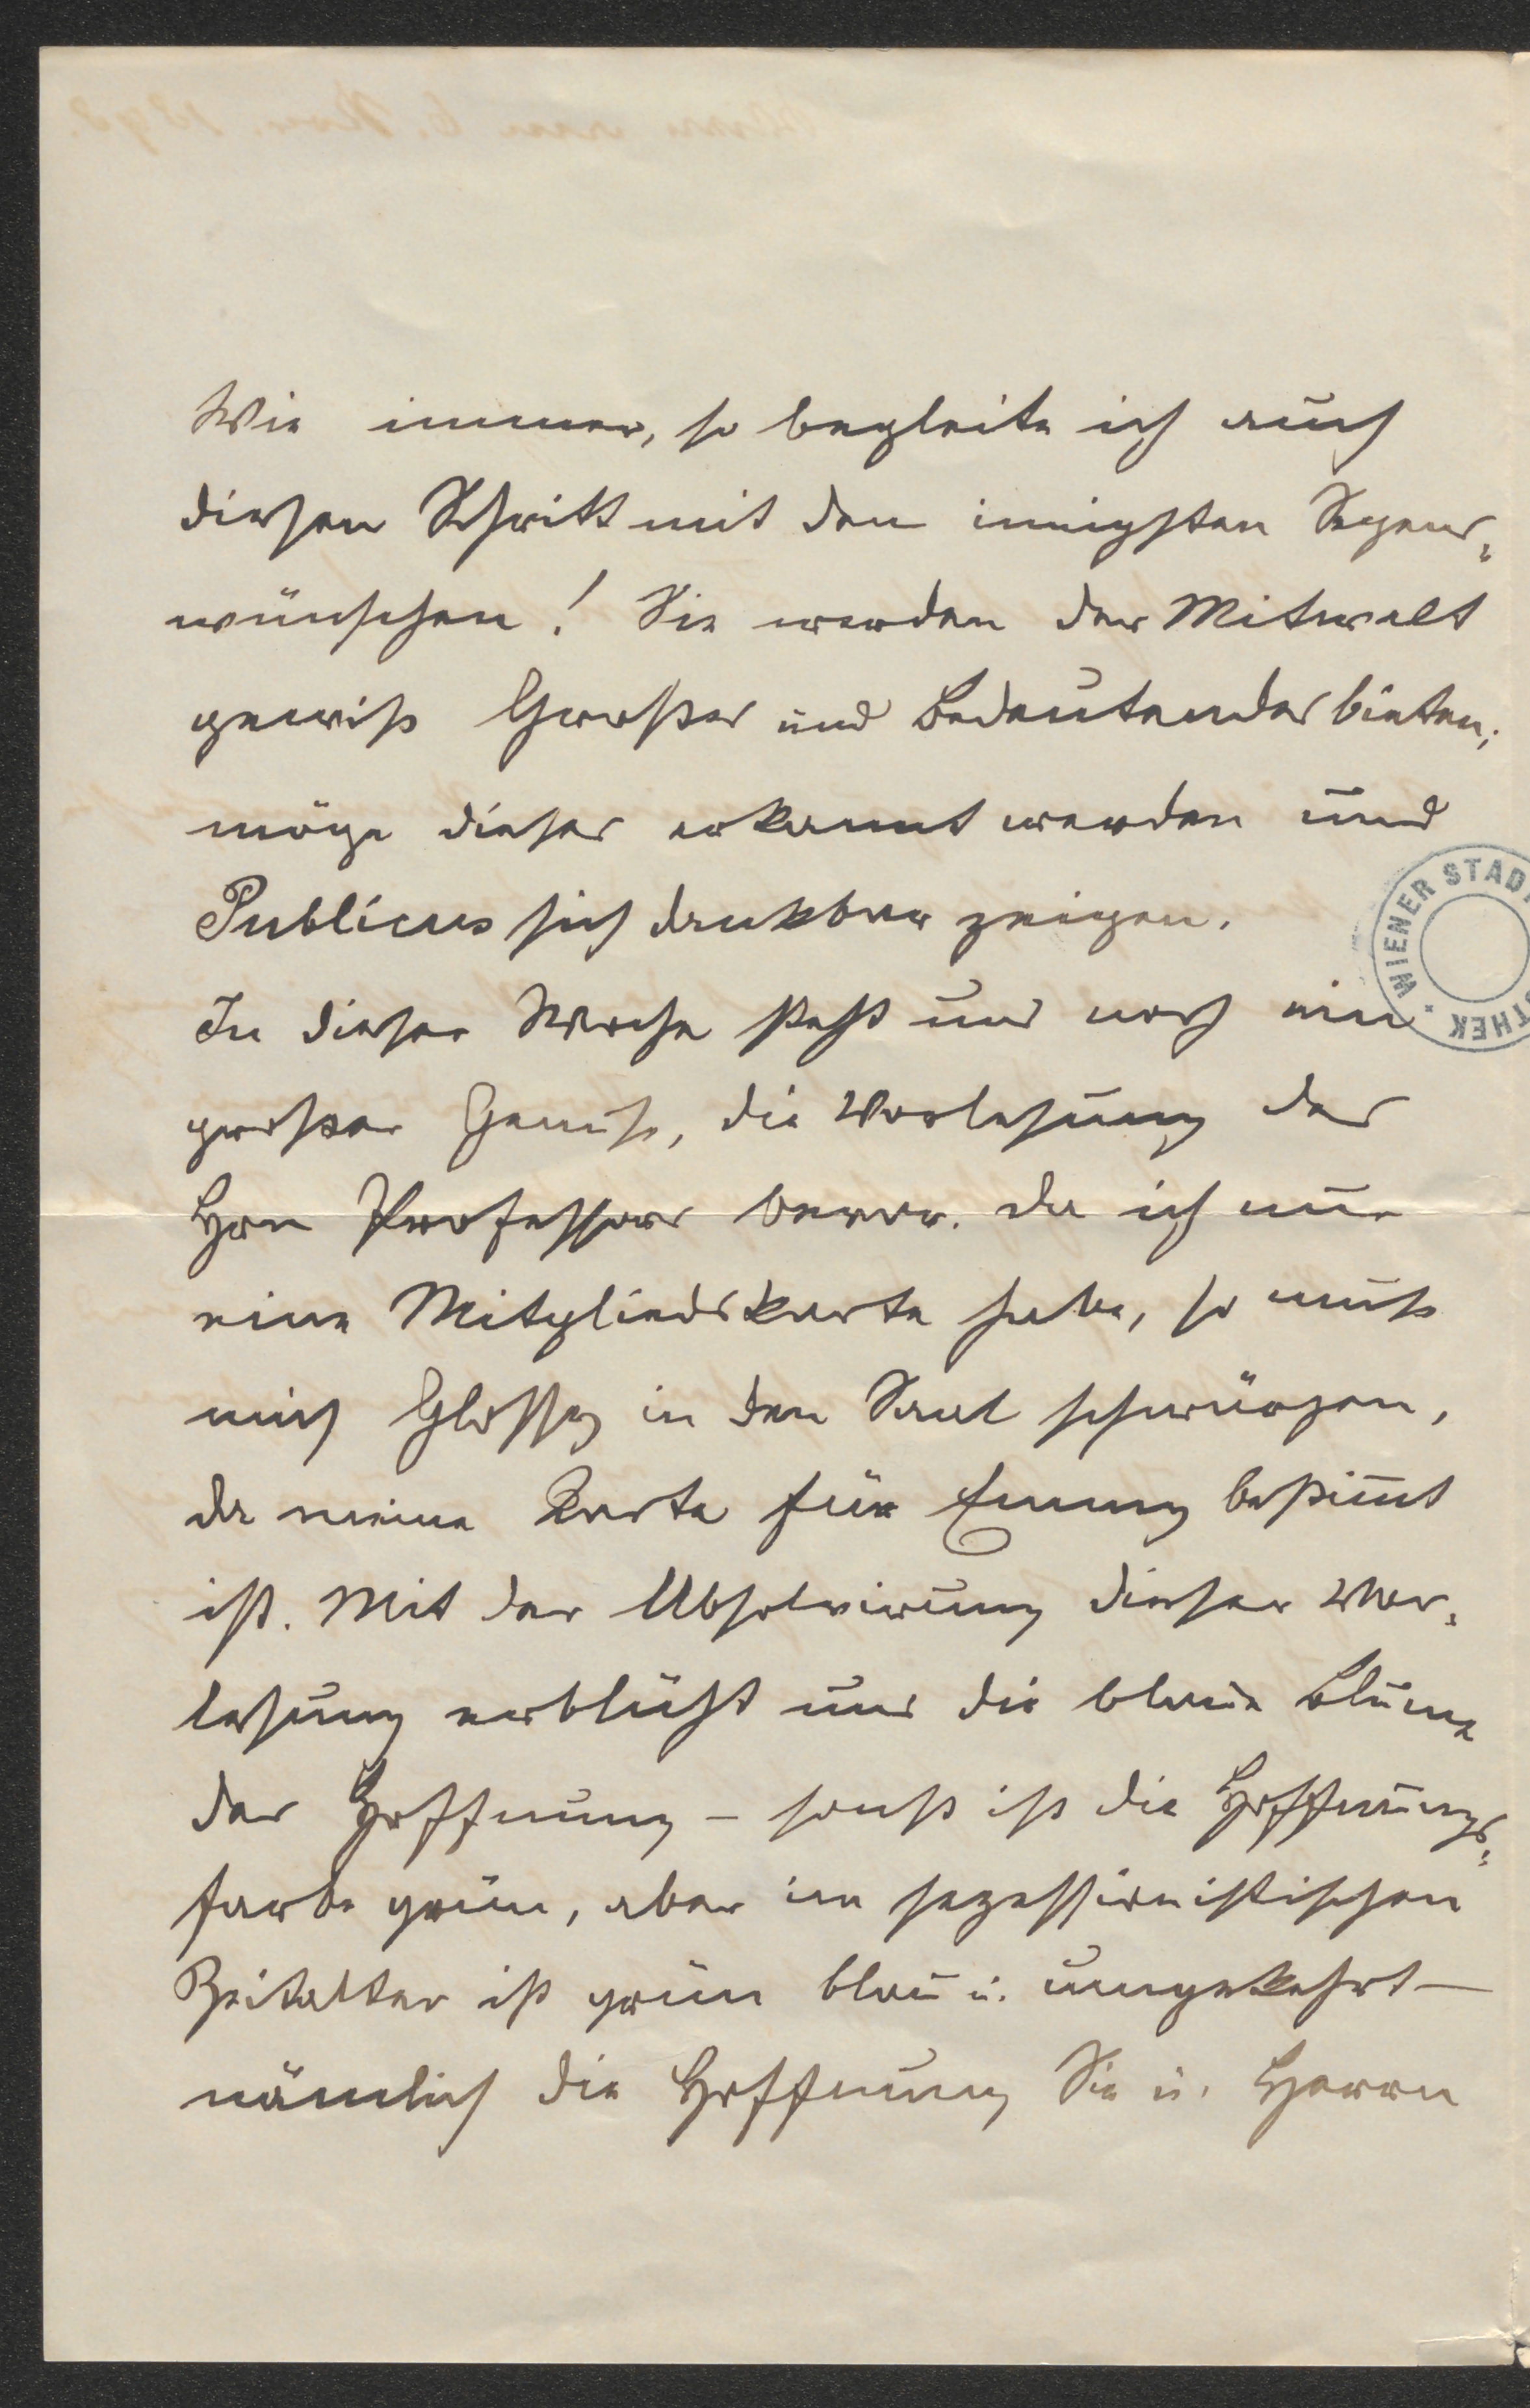 Wie immer, so begleite ich auch
diesen Schritt mit den innigsten Segens„
wünschen! Sie werden der Mitwelt
gewiß Großes und Bedeutendes bieten;
möge dieses erkannt werden und
Publicus sich dankbar zeigen.
In dieser Woche steht uns noch ein
großer Genuß, die Vorlesung des
Hrn Professors bevor. Da ich nur
eine Mitgliedskarte habe, so muß
mich Glossy in den Saal schwärzen,
da meine Karte für Emmy bestim̄t
ist. Mit der Absolvirung dieser Vor„
lesung erblüht uns die blaue Blume
der Hoffnung – sonst ist die Hoffnungs„
farbe grün, aber im sezessionistischen
Zeitalter ist grün blau u. umgekehrt –
nämlich die Hoffnung Sie u. Herrn
WIENER STAD
THEK